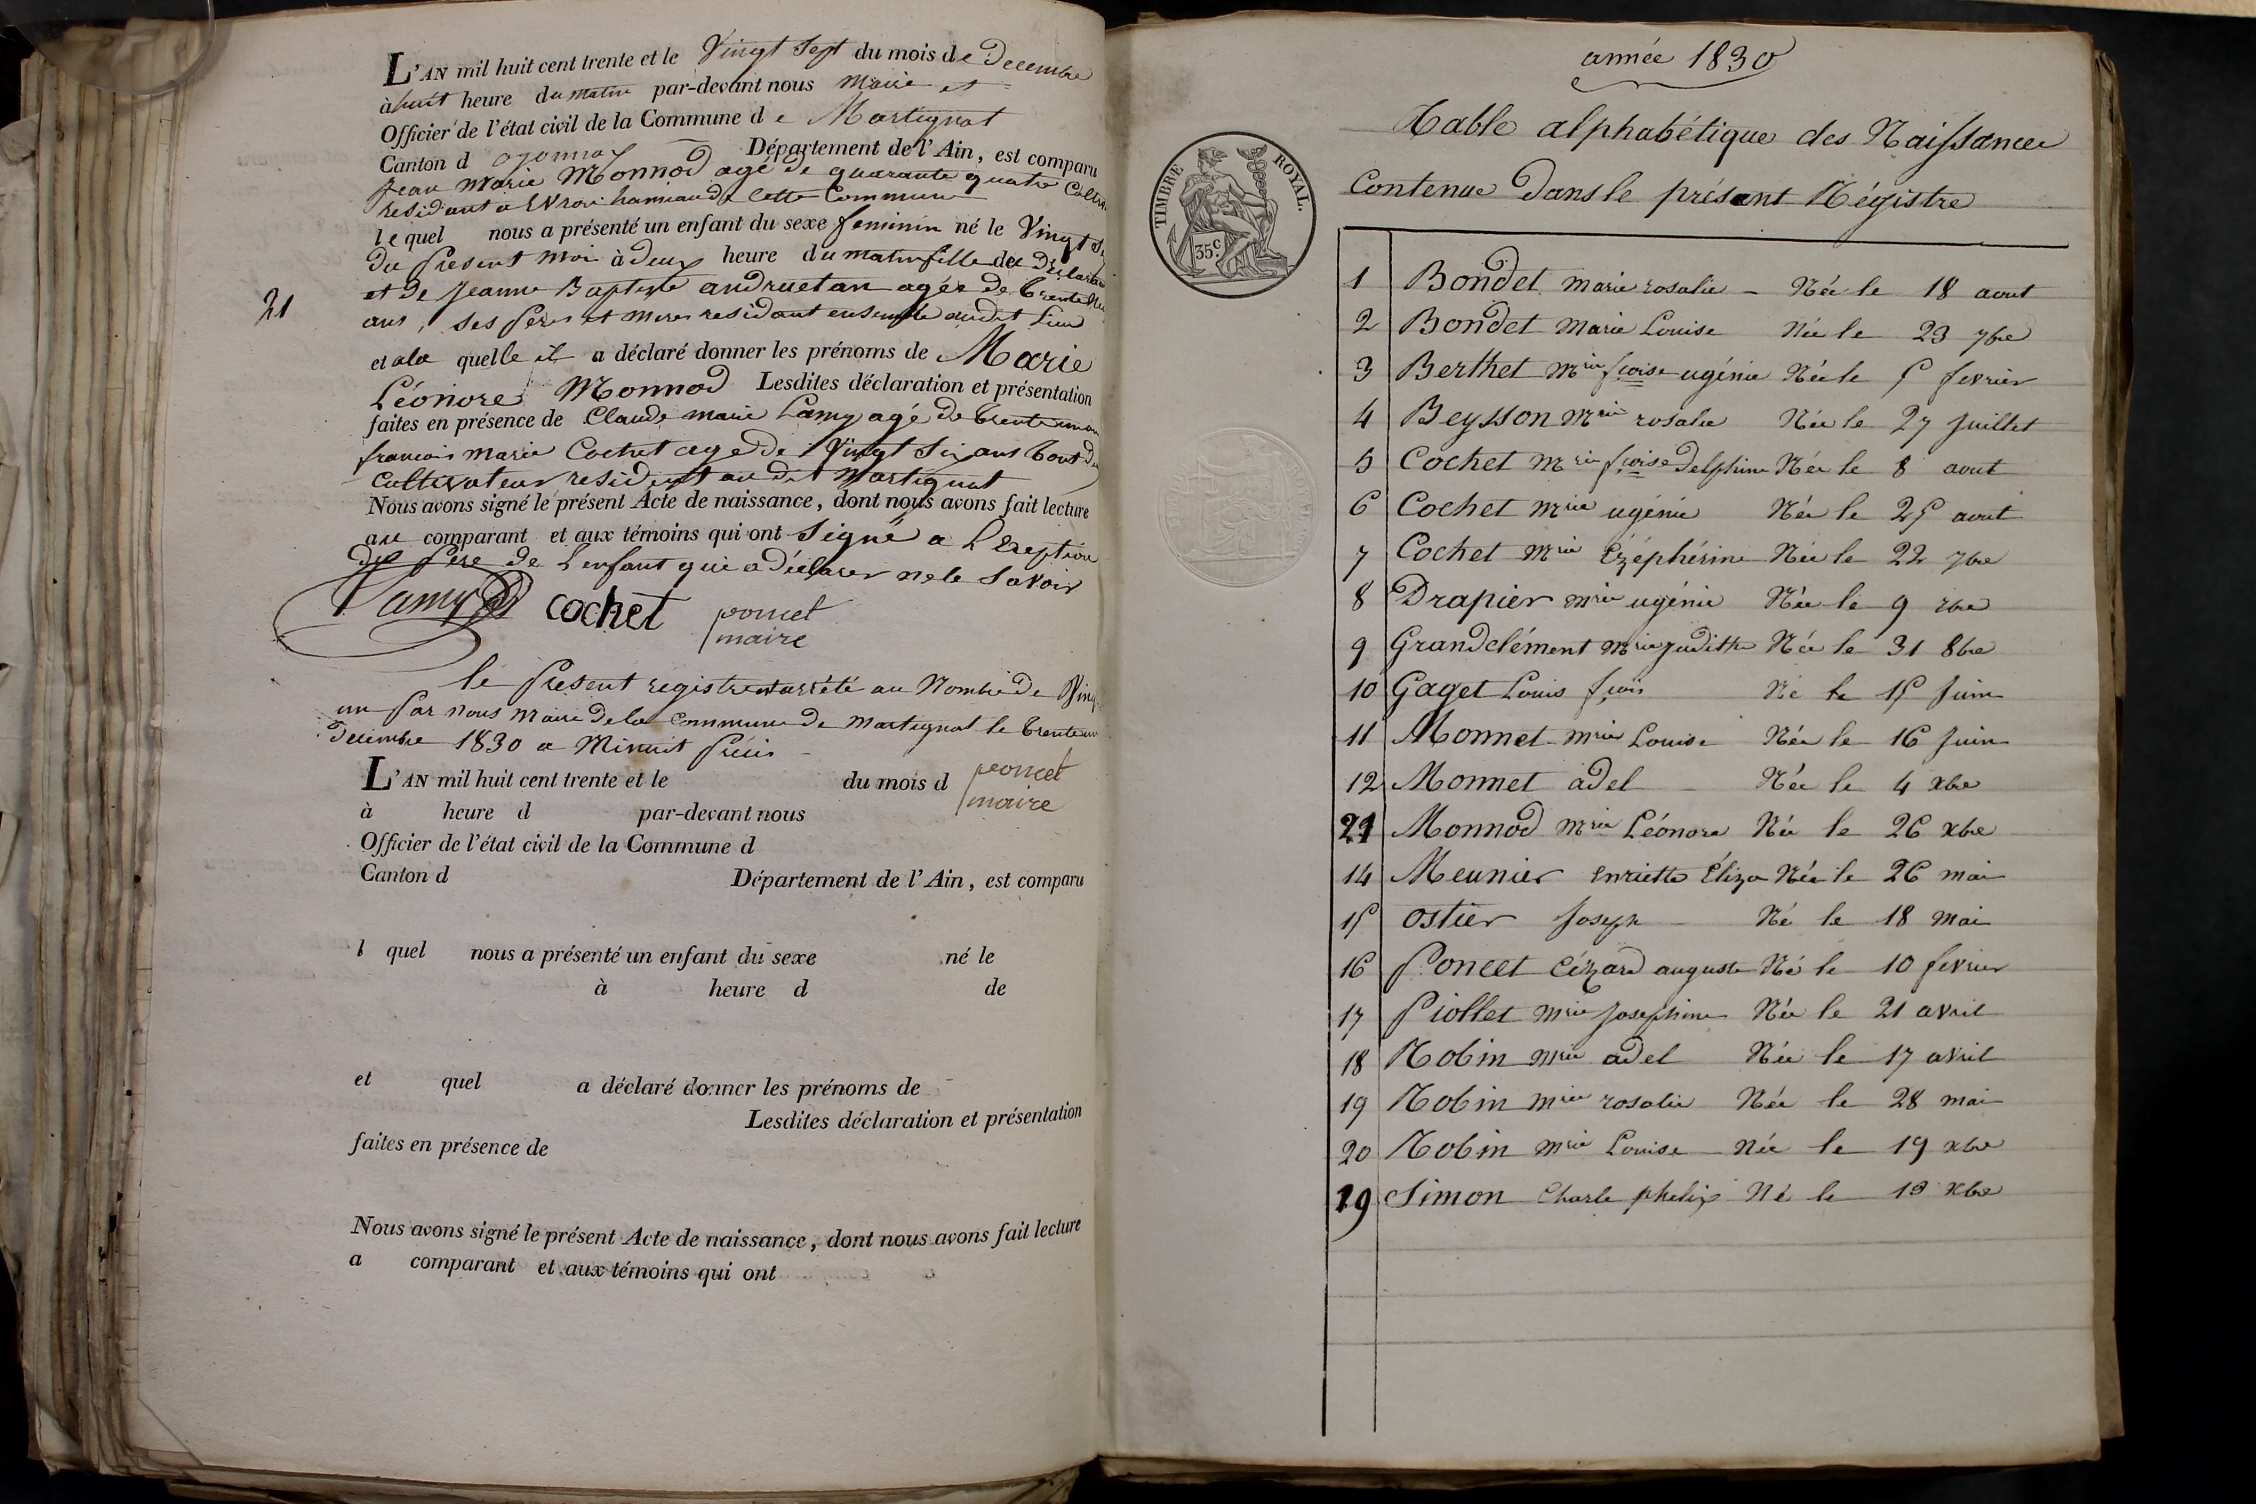 L'AN mil huit cent trente et le Vingt Sept du mois de Decembre
à huit heure du matin par-devant nous Maire et
Officier de l'état civil de la Commune de Martignat
Canton d oyonnax Département de l'Ain, est comparu
Jean Marie Monnod agé de quarante quatre
residant a cette Commune
lequel nous a présenté un enfant du sexe feminin né le Vingt
du present moi à deux heure du matin fille du
et de Jeanne Baptiste andruetan agés de trente
ans, ses pere et mere residant ensemble audit Lieu
21
et ala quelle il a déclaré donner les prénoms de Marie
Léonore Monnod Lesdites déclaration et présentation
faites en présence de Claude marie Lamy agé de trente
francois marie Cochet age de Vingt Six ans tout
Cultivateur residant au dit Martignat
Nous avons signé le présent Acte de naissance, dont nous avons fait lecture
au comparant et aux témoins qui ont Signé a L'exeption
du Pere de L'enfant qui a déclarer ne le Savoir
Lamy cochet poncet
maire
le Present registre est arrété au Nombre de Vingt
un par nous Maire de la Commune de Martignat le trente un
Decembre 1830 a Minuit Précis
poncet
maire
L'AN mil huit cent trente et le du mois d
à heure d par-devant nous
Officier de l'état civil de la Commune d
Canton d Département de l'Ain, est comparu
l quel nous a présenté un enfant du sexe né le
à heure d de
et quel a déclaré donner les prénoms de
Lesdites déclaration et présentation
faites en présence de
Nous avons signé le présent Acte de naissance, dont nous avons fait lecture
a comparant et aux témoins qui ont
année 1830
TIMBRE ROYAL.
35 c.
Table alphabétique des Naissance
Contenue dans le présent Régistre
1 Bondet marie rosalie - Née le 18 aout
2 Bondet Marie Louise Née le 23 7bre
3 Berthet Mrie fçoise ugénie Née le 5 fevrier
4 Beysson Mrie rosalie Née le 27 Juillet
5 Cochet Mrie fçoise Delphine Née le 8 aout
6 Cochet Mrie ugénie Née le 25 aout
7 Cochet Mrie Ézéphérine Née le 22 7bre
8 Drapier Mrie ugénie Née le 9 xbre
9 Grandclément Mrie Judith Née le 31 8bre
10 Gaget Louis fçois Né le 15 Juin
11 Monnet Mrie Louise Née le 16 Juin
12 Monnet adel Née le 4 xbre
21 Monnod Mrie Léonore Née le 26 xbre
14 Meunier enriette Éliza Née le 26 mai
15 Ostier Joseph Né le 18 mai
16 Poncet Cézard auguste Né le 10 fevrier
17 Piollet Mrie Josephine Née le 21 avril
18 Robin Mrie adel Née le 17 avril
19 Robin Mrie rosalie Née le 28 mai
20 Robin Mrie Louise Née le 19 xbre
19 Simon Charle phelix Né le 13 xbre